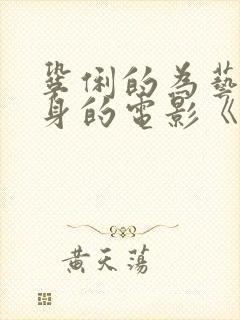 鞏俐的為藝
身的電影《
黃天蕩